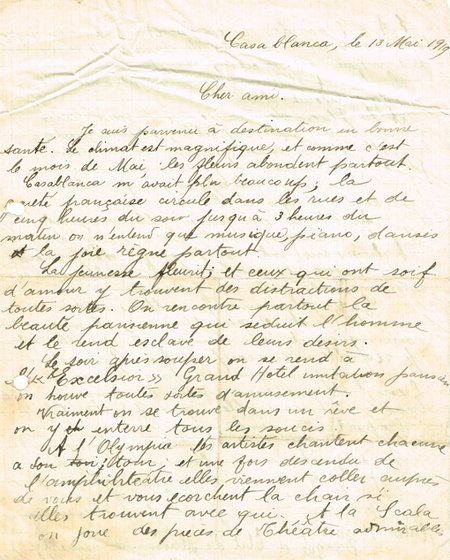 Casablanca, le 13 Mai 1919
Cher ami.
Je suis parvenu à destination en bonne
santé. Le climat est magnifique, et comme c'est
le mois de Mai les fleurs abondent partout.
Casablanca m'avait plu beaucoup, la
française circule dans les rues et de
cinq heures du soir jusqu'à 3 heures du
matin on n'entend que musique, piano, danses
et la joie règne partout.
La jeunesse fleurit, et ceux qui ont soif
d'amour y trouvent des distractions de
toutes sortes. On rencontre partout la
beauté parisienne qui séduit l'homme
et le rend esclave de leurs desirs.
Le soir après souper on se rend à
l'« Excelsior » Grand Hotel imitation
on trouve toutes sortes d'amusement.
Vraiment on se trouve dans un rêve et
on y enterre tous les soucis.
A l'Olympia les artistes chantent chacune
a son tour, et une fois descendu de
l'amphithéâtre elles viennent coller auprès
de vous et vous écorchent la chair si
elles trouvent avec qui. A la Scala
on joue des pièces de Théâtre admirables